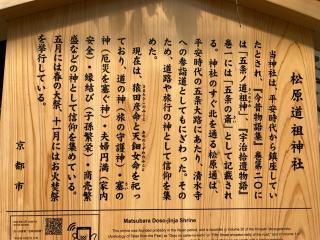 松原道祖神社
当神社は、平安時代から鎮座してい
たとされ、『今昔物語集』巻第二〇に
は「五条ノ道祖神」、『宇治拾遺物語』
巻一には「五条の斎」として記載され
る。神社のすぐ北を通る松原通は、
平安時代の五条大路にあたり、清水寺
への参詣道としてもにぎわった。その
ため、道路や旅行の神として信仰を集
めた。
現在は、猿田彦命と天鈿女命を祀っ
ており、道の神(旅の守護神)・塞の
神(厄災を塞ぐ神)・夫婦円満(家内
安全・縁結び(子孫繁栄・商売繁
盛などの神として信仰を集めている。
五月には春の大祭、十一月にはお火焚祭
を挙行している。
京都市
Matsubara Doso-jinja Shrine